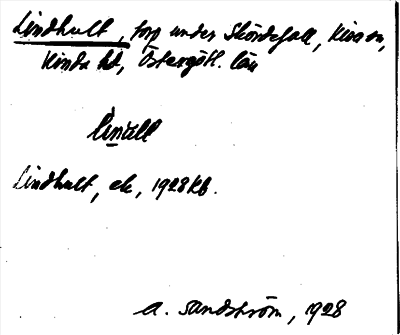 Lindhult, torp under Skördefall, Kisa sn,
Kinda hd, Östergötl. län
Lindhult, ek, 1928 Kb.
A. Sandström, 1928